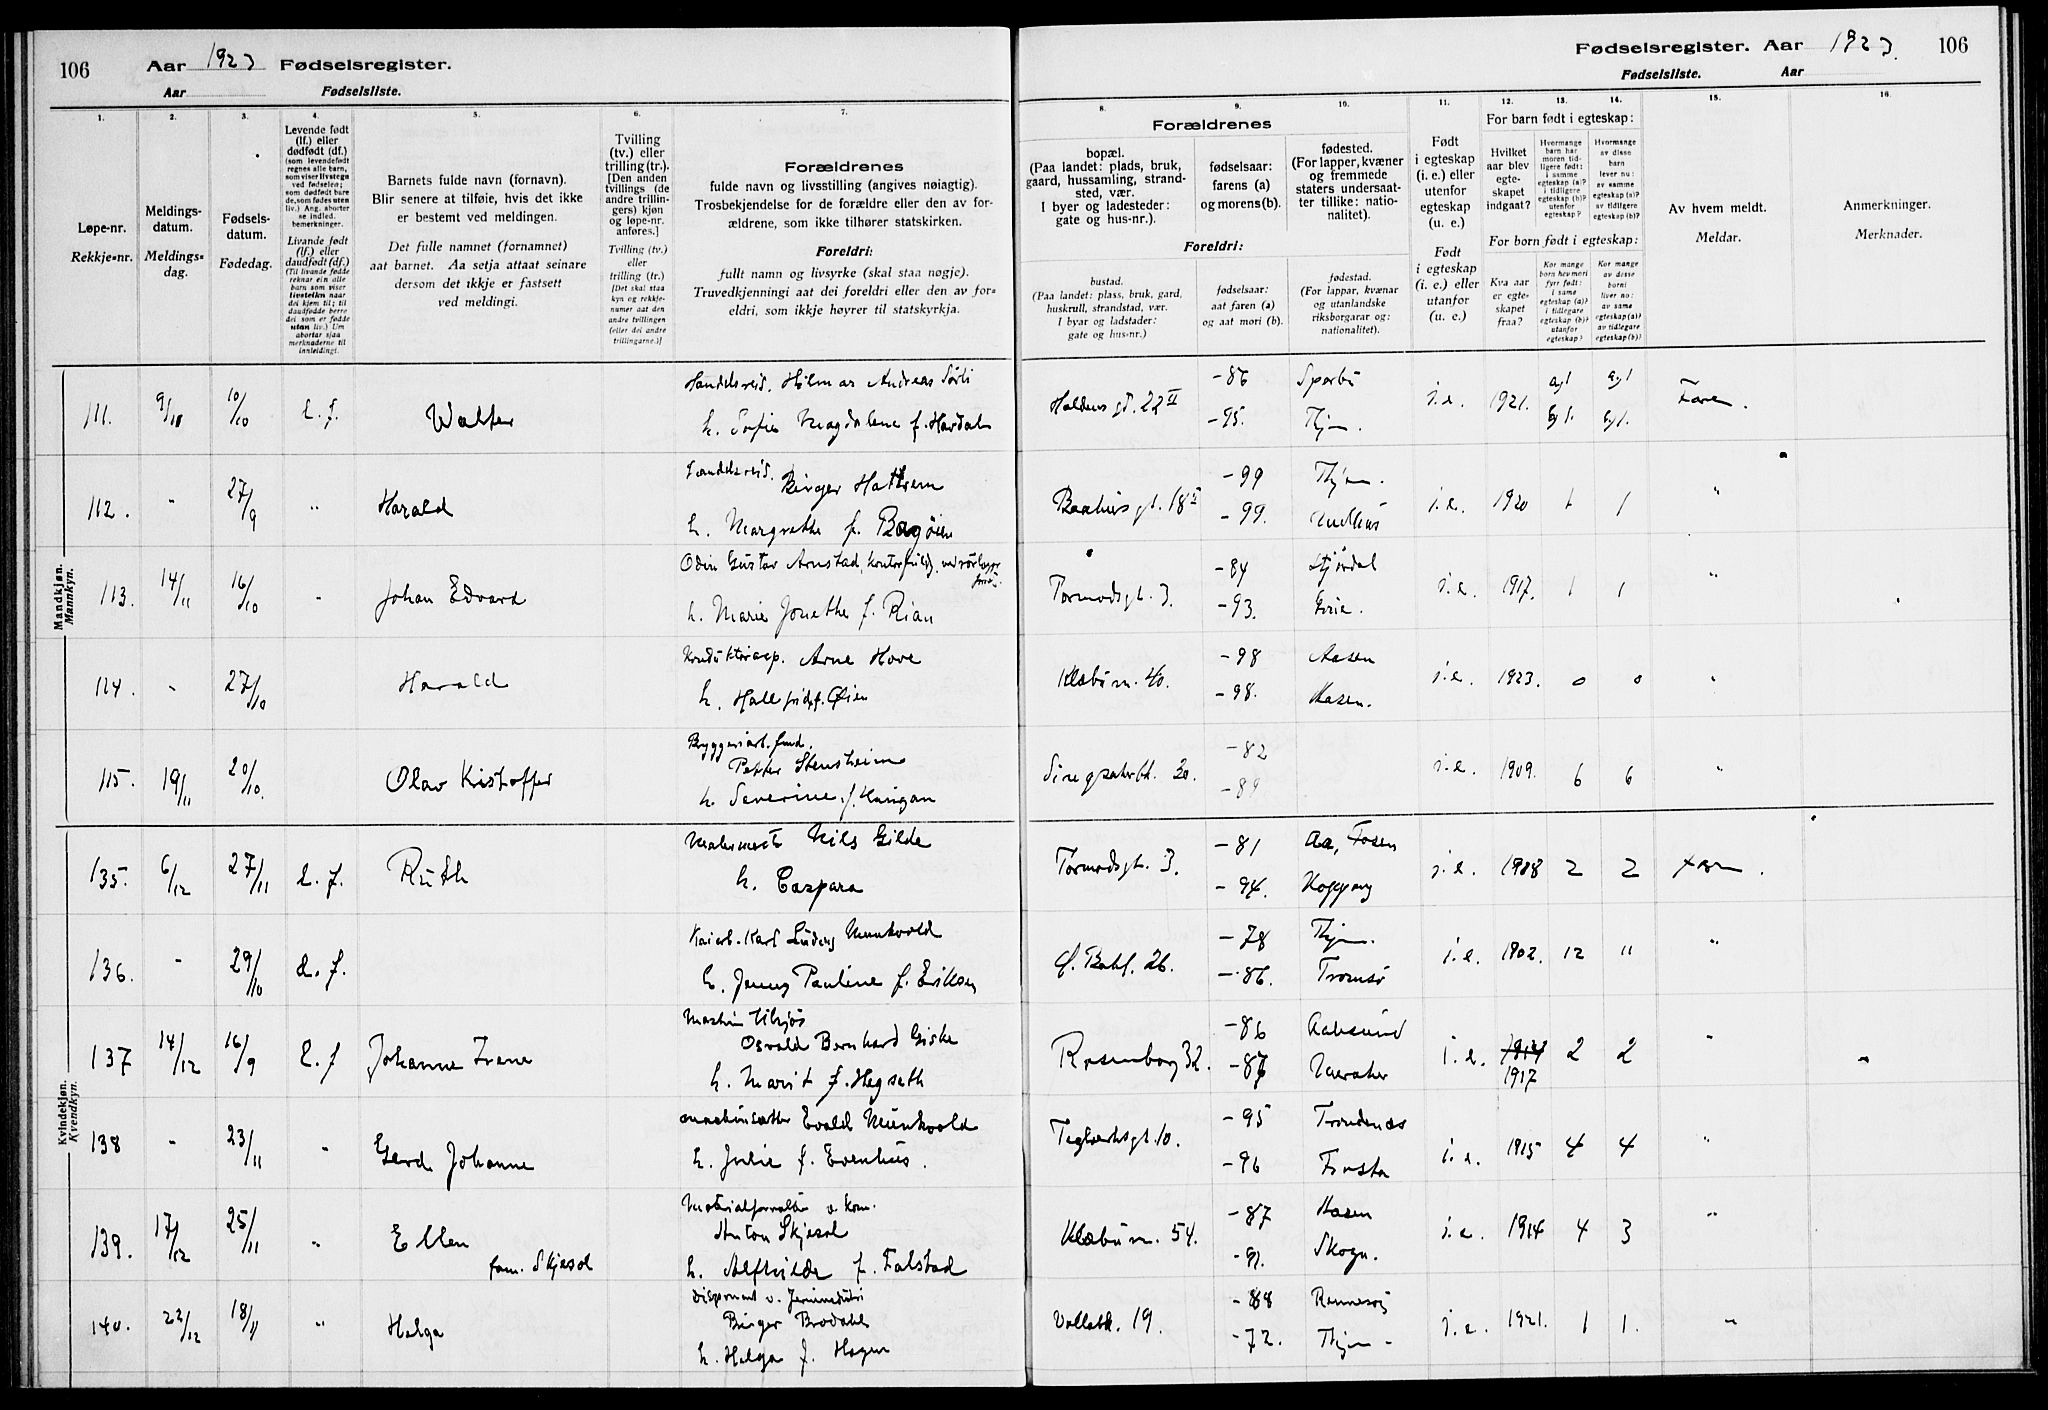 106 Aar 1923 Fødselsregister.
Aar Fødselsliste.
Fødselsregister. Aar 1923. 106
Fødselsliste. Aar
1.
2.
3.
4.
5.
6.
7.
8.
9.
10.
11.
12.
13.
14.
15.
16.
Løpe-nr.
Rekkje-nr.
Meldings-
datum.
Meldings-
dag.
Fødsels-
datum.
Fødedag.
Levende født
(lf.) eller
dødfødt (df.)
(som levendefødt
regnes alle barn,
som viser livstegn
ved fødselen;
som dødfødt bare
de, som fødes uten
liv.) Ang. aborter
se indled.
bemerkninger.
Livande født
(lf.) eller
daudfødt (df.)
(Til livande fødde
reknar ein alle
barn som viser
livsteikn naar
dei kjem til; til
daudfødde berre
dei som er fødde
utan liv.) Um
abortar sjaa
merknaderne til
innleidingi.
Barnets fulde navn (fornavn).
Blir senere at tilføie, hvis det ikke
er bestemt ved meldingen.
Det fulle namnet (fornamnet)
aat barnet. Aa setja attaat seinare
dersom det ikkje er fastsett
ved meldingi.
Tvilling
(tv.) eller
trilling (tr.).
[Den anden
tvillings (de
andre trillin-
gers) kjøn
og løpe-nr.
anføres.]
Tvilling (tv.)
eller
trilling (tr.)
[Det skal staa
kyn og rekkje-
numer aat den
andre tvillingen
(eller dei andre
trillingarne.)]
Forældrenes
fulde navn og livsstilling (angives nøiagtig).
Trosbekjendelse for de forældre eller den av for-
ældrene, som ikke tilhører statskirken.
Foreldri:
fullt namn og livsyrke (skal staa nøgje).
Truvedkjenningi aat dei foreldri eller den av for-
eldri, som ikkje høyrer til statskyrkja.
Forældrenes
bopæl.
(Paa landet: plads, bruk,
gaard, hussamling, strand-
sted, vær.
I byer og ladesteder:
gate og hus-nr.).
fødselsaar:
farens (a)
og morens (b).
fødested.
(For lapper, kvæner
og fremmede
staters undersaat-
ter tillike: natio-
nalitet).
Foreldri:
bustad.
(Paa landet: plass, bruk, gard,
huskrull, strandstad, vær.
I byar og ladstader:
gate og hus-nr.)
fødselsaar:
aat faren (a)
og aat mori (b).
fødestad.
(For lappar, kvænar
og utanlandske
riksborgarar og:
nationalitet).
Født
i egteskap
(i. e.) eller
utenfor
egteskap
(u. e.)
Født
i egteskap
(i. e.) eller
utanfor
(u. e.)
For barn født i egteskap:
Hvilket
aar blev
egte-
skapet
indgaat?
Hvormange
barn har
moren tid-
ligere født:
i samme
egteskap (a)?
i tidligere
egteskap (b)?
utenfor
egteskap?
Hvormange
av disse
barn
lever nu:
av samme
egteskap (a)?
av tidligere
egteskap (b)?
For born født i egteskap:
Kva aar
er egte-
skapet
fraa?
Kor mange
born hev mori
fyrr født:
i same
egteskap (a)?
i tidlegare
egteskap (b)?
utanfor
egteskap?
Kor mange
av desse
borni
liver no:
av same
egteskap (a)?
av tidlegare
egteskap (b)?
Av hvem meldt.
Meldar.
Anmerkninger.
Merknader.
Mandkjøn.
Mannkyn.
111. 9/11 10/10 l. f. Walter
Handelsreis. Hilmar Andreas Sørli
h. Sofie Magdalene f. Hardal
-86
-95. Thjm. i.e. 1921. Faren.
112. " 27/9 " Harald
Handelsreis. Birger Hattrem
h. Margrethe f. Bagøien
-99 Thjm.
-99. i.e. 1920 1 1 "
113. 14/11 16/10 " Johan Edvard
Odin Gustav Arnstad,
h. Marie Jonethe f. Rian
Tormodsgt. 3. -84 Stjørdal
-93. i.e. 1917. 1 1 "
114. " 27/10 Harald
Konduktørasp. Arne Hove
h. Hallfrid f. Øien
Klæbuv. 40. -98 Aasen
-98. Aasen. i.e. 1923. 0 0 "
115. 19/11 20/10. Olav Kistoffer
Bryggeriarb. Petter Stensheim
h. Severine f.
30. -82
-89 i.e. 1909. 6 6 "
Kvindekjøn.
Kvendkyn.
135. 6/12 27/11 l. f. Ruth
Malermester Nils Gilde
h. Caspara
Tormodsgt. 3. -81 Aa, Fosen
-94. Koppang i.e. 1908 2 2 Faren.
136. " 29/10 l. f.
Karl Munkvold
h. Jenny Pauline f. Eriksen
26. -78 Thjm.
-86. Tromsø i.e. 1902. 12 11 "
137 14/12 16/9 l. f Johanne Irene
Osvald Bernhard Giske
h. Marit f. Hegseth
Rosenborg 32. -86 Aalesund
-87 Meraker i.e. 1917 2 2 " "
138 " 23/11 " Gerd Johanne
maskinsætter Evald Munkvold
h. Julie f. Evenhus.
Teglverksgt. 10. -95 Trondenæs
-96 Frosta i.e. 1915 4 4 "
139. 17/12 25/11 " Ellen
fam. Skjesol
Materialforvalter v. kom.
Anton Skjesol
h. Alfhilde f. Falstad
Klæbuv. 54. -87 Aasen
-91. Skogn. i.e. 1914 4 3 "
140. 22/12 18/11 " Helga
Disponent v. Jernindustri
Birger Brodahl
h. Helga f. Hagen
Vollabk. 19. -88
-72. Thjm- i.e. 1921. 1 1. "